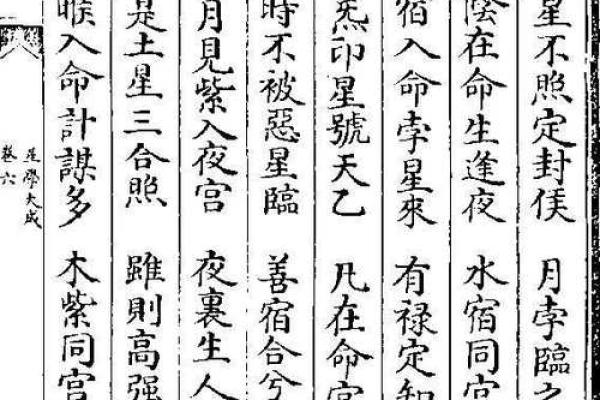 星不照定封侯　月孛臨之
陰在命生逢夜　水宿同宫
宿入命孛星來　有禄定知
炁印星號天乙　凡在命宫
時不被惡星臨　善宿合兮
月見紫入夜宫　夜裏生人
是土星三合照　雖則高强
睺入命計謀多　木紫同宫
星學大成
卷六